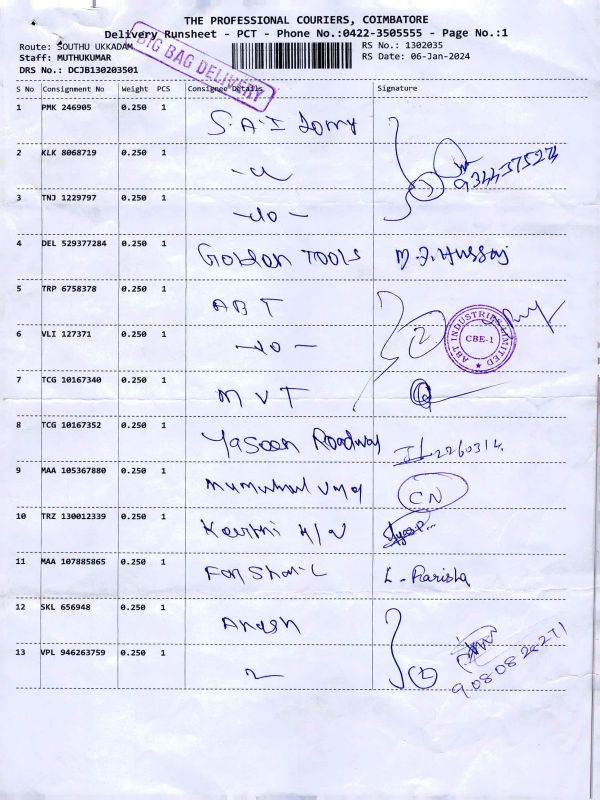 THE PROFESSIONAL COURIERS, COIMBATORE
Delivery Runsheet - PCT - Phone No.:0422-3505555 - Page No.:1
Route: SOUTHU UKKADAM
RS No.: 1302035
Staff: MUTHUKUMAR
RS Date: 06-Jan-2024
DRS No.: DCJB130203501
BIG BAG DELIVERY
S No Consignment No Weight PCS Consignee Details Signature
1 PMK 246905 0.250 1 S.A.I Lorry
2 KLK 8068719 0.250 1
3 TNJ 1229797 0.250 1 -do-
4 DEL 529377284 0.250 1 Golden TOOLS
5 TRP 6758378 0.250 1 ABT
6 VLI 127371 0.250 1 -do- 2
ABT INDUSTRIES LIMITED
CBE-1
7 TCG 10167340 0.250 1 MVT
8 TCG 10167352 0.250 1 Yaseen Roadway 2260314
9 MAA 105367880 0.250 1 CN
10 TRZ 130012339 0.250 1
11 MAA 107885865 0.250 1
12 SKL 656948 0.250 1
13 VPL 946263759 0.250 1 2